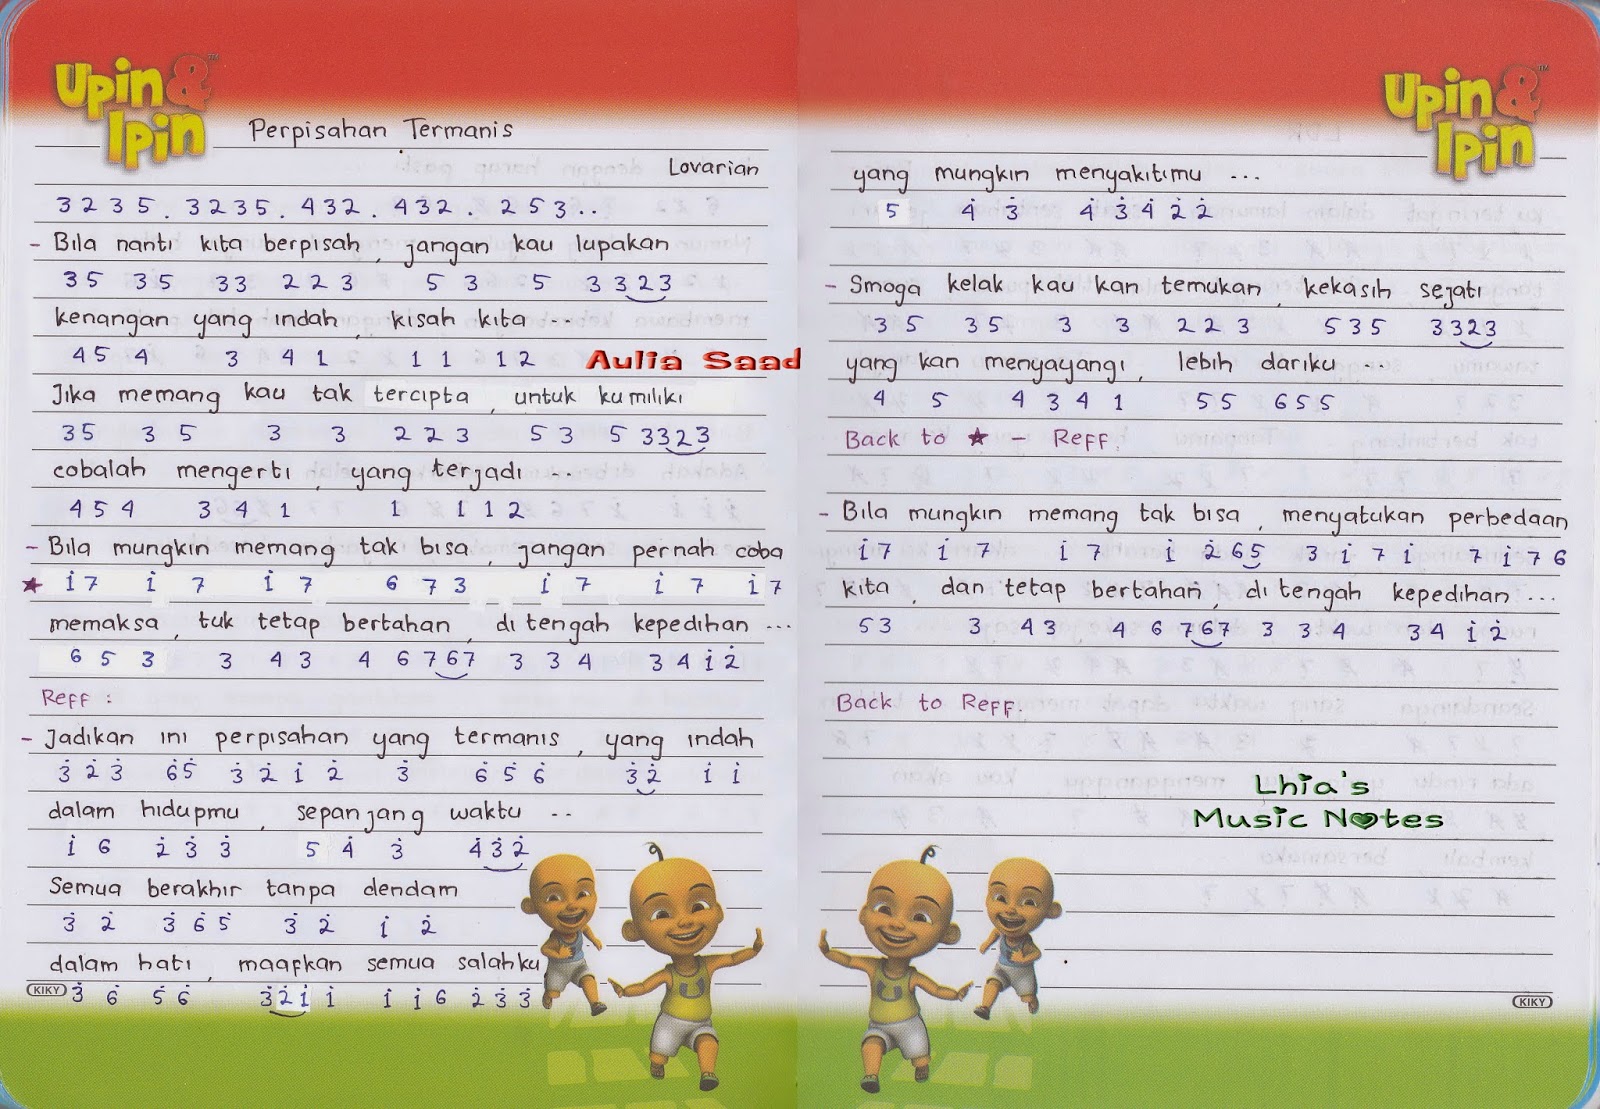 Upin & Ipin™
Perpisahan Termanis
Lovarian
3 2 3 5 . 3 2 3 5 . 4 3 2 . 4 3 2 . 2 5 3 . .
- Bila nanti kita berpisah, jangan kau lupakan
3 5 3 5 3 3 2 2 3 5 3 5 3 3 2 3
kenangan yang indah, kisah kita ...
4 5 4 3 4 1 1 1 1 2
Aulia Saad
Jika memang kau tak tercipta, untuk kumiliki
3 5 3 5 3 3 2 2 3 5 3 5 3 3 2 3
cobalah mengerti, yang terjadi ...
4 5 4 3 4 1 1 1 1 2
- Bila mungkin memang tak bisa, jangan pernah coba
★ i 7 i 7 i 7 6 7 3 i 7 i 7 i 7
memaksa, tuk tetap bertahan, di tengah kepedihan ...
6 5 3 3 4 3 4 6 7 6 7 3 3 4 3 4 i 2̇
Reff :
- Jadikan ini perpisahan yang termanis, yang indah
3̇ 2̇ 3̇ 6̇ 5̇ 3̇ 2̇ i 2̇ 3̇ 6̇ 5̇ 6̇ 3̇ 2̇ i i
dalam hidupmu, sepanjang waktu ..
i 6 2̇ 3̇ 3̇ 5 4̇ 3̇ 4̇ 3̇ 2̇
Semua berakhir tanpa dendam
3̇ 2̇ 3̇ 6̇ 5̇ 3̇ 2̇ i 2̇
dalam hati, maafkan semua salahku
3̇ 6̇ 5̇ 6̇ 3̇ 2̇ i i i i 6 2̇ 3̇ 3̇
KIKY
Upin & Ipin™
yang mungkin menyakitimu ...
5 4̇ 3̇ 4̇ 3̇ 4̇ 2̇ 2̇
- Smoga kelak kau kan temukan, kekasih sejati
3 5 3 5 3 3 2 2 3 5 3 5 3 3 2 3
yang kan menyayangi, lebih dariku ...
4 5 4 3 4 1 5 5 6 5 5
Back to ★ - Reff.
- Bila mungkin memang tak bisa, menyatukan perbedaan
i 7 i 7 i 7 i 2̇ 6 5 3 i 7 i 7 i 7 6
kita, dan tetap bertahan, di tengah kepedihan ...
5 3 3 4 3 4 6 7 6 7 3 3 4 3 4 i 2̇
Back to Reff.
Lhia's
Music Notes
KIKY